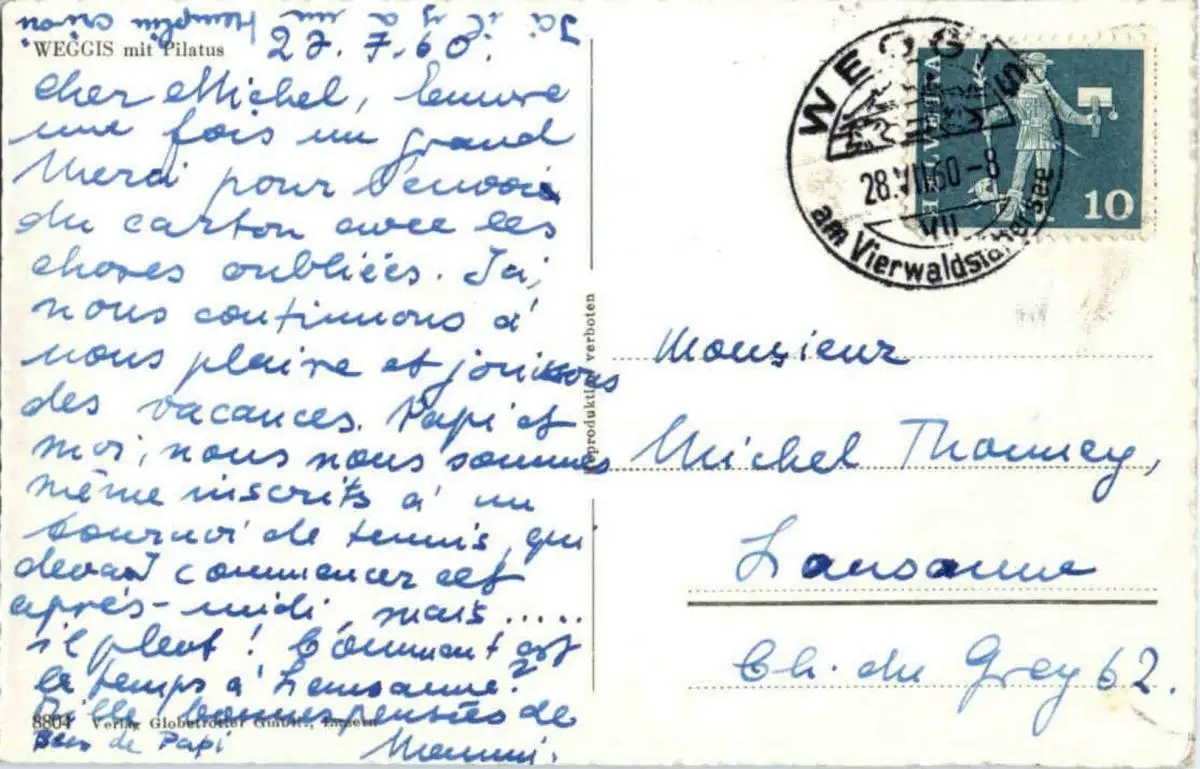 Ici il y a un
WEGGIS mit Pilatus
27.7.60.
Cher Michel, Encore
une fois un grand
Merci pour l'envoi
du carton avec les
choses oubliées. Ici,
nous continuons à
nous plaire et jouissons
des vacances. Papi et
moi, nous nous sommes
même inscrits à un
tournoi de tennis, qui
devait commencer cet
après-midi, mais.....
il pleut! Comment est
le temps à Lausanne?
Mille bonnes pensées de
8804 Verlag Globetrotter GmbH., Luzern
Bess de Papi
Mammi.
Reproduktion verboten
WEGGIS
28.VII.60-8
VII
am Vierwaldstättersee
HELVETIA
10
Monsieur
Michel Thonney,
Lausanne
Ch. du Grey 62.